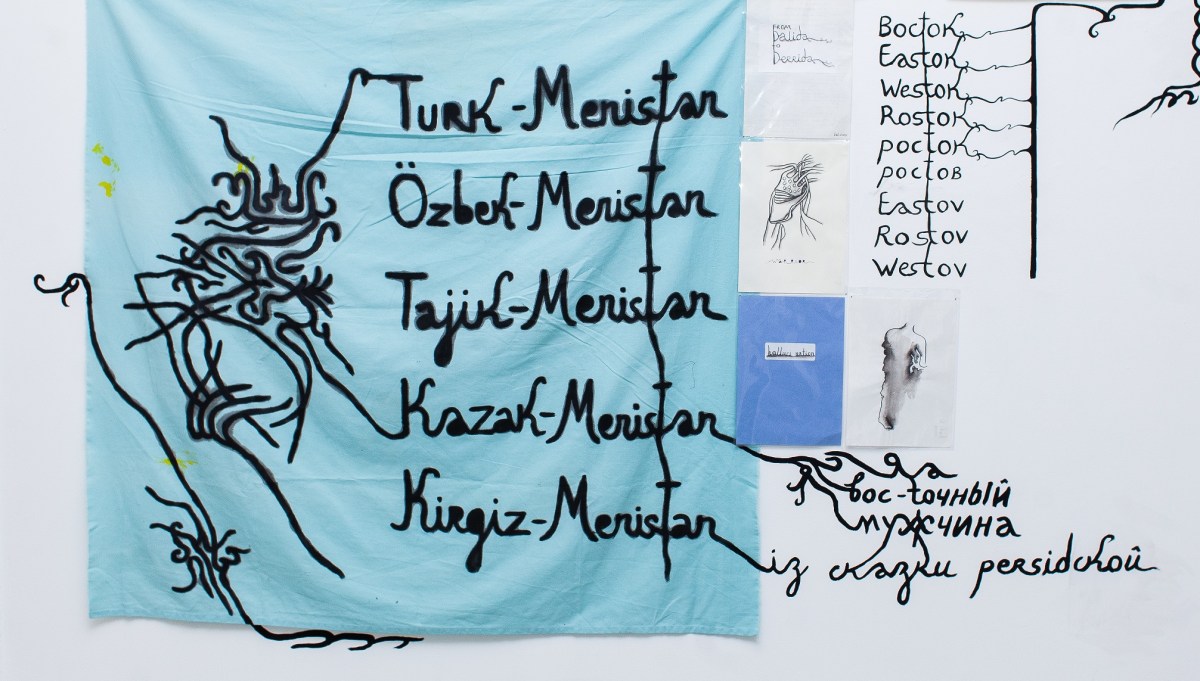 Turk-Menistan
Özbek-Menistan
Tajik-Menistan
Kazak-Menistan
Kirgiz-Menistan
FROM
Dalida
to
Derrida
Восток
Eastok
Westok
Rostok
росток
ростов
Eastov
Rostov
Westov
Я а
вос-точный
мужчина
iз сказки persidской